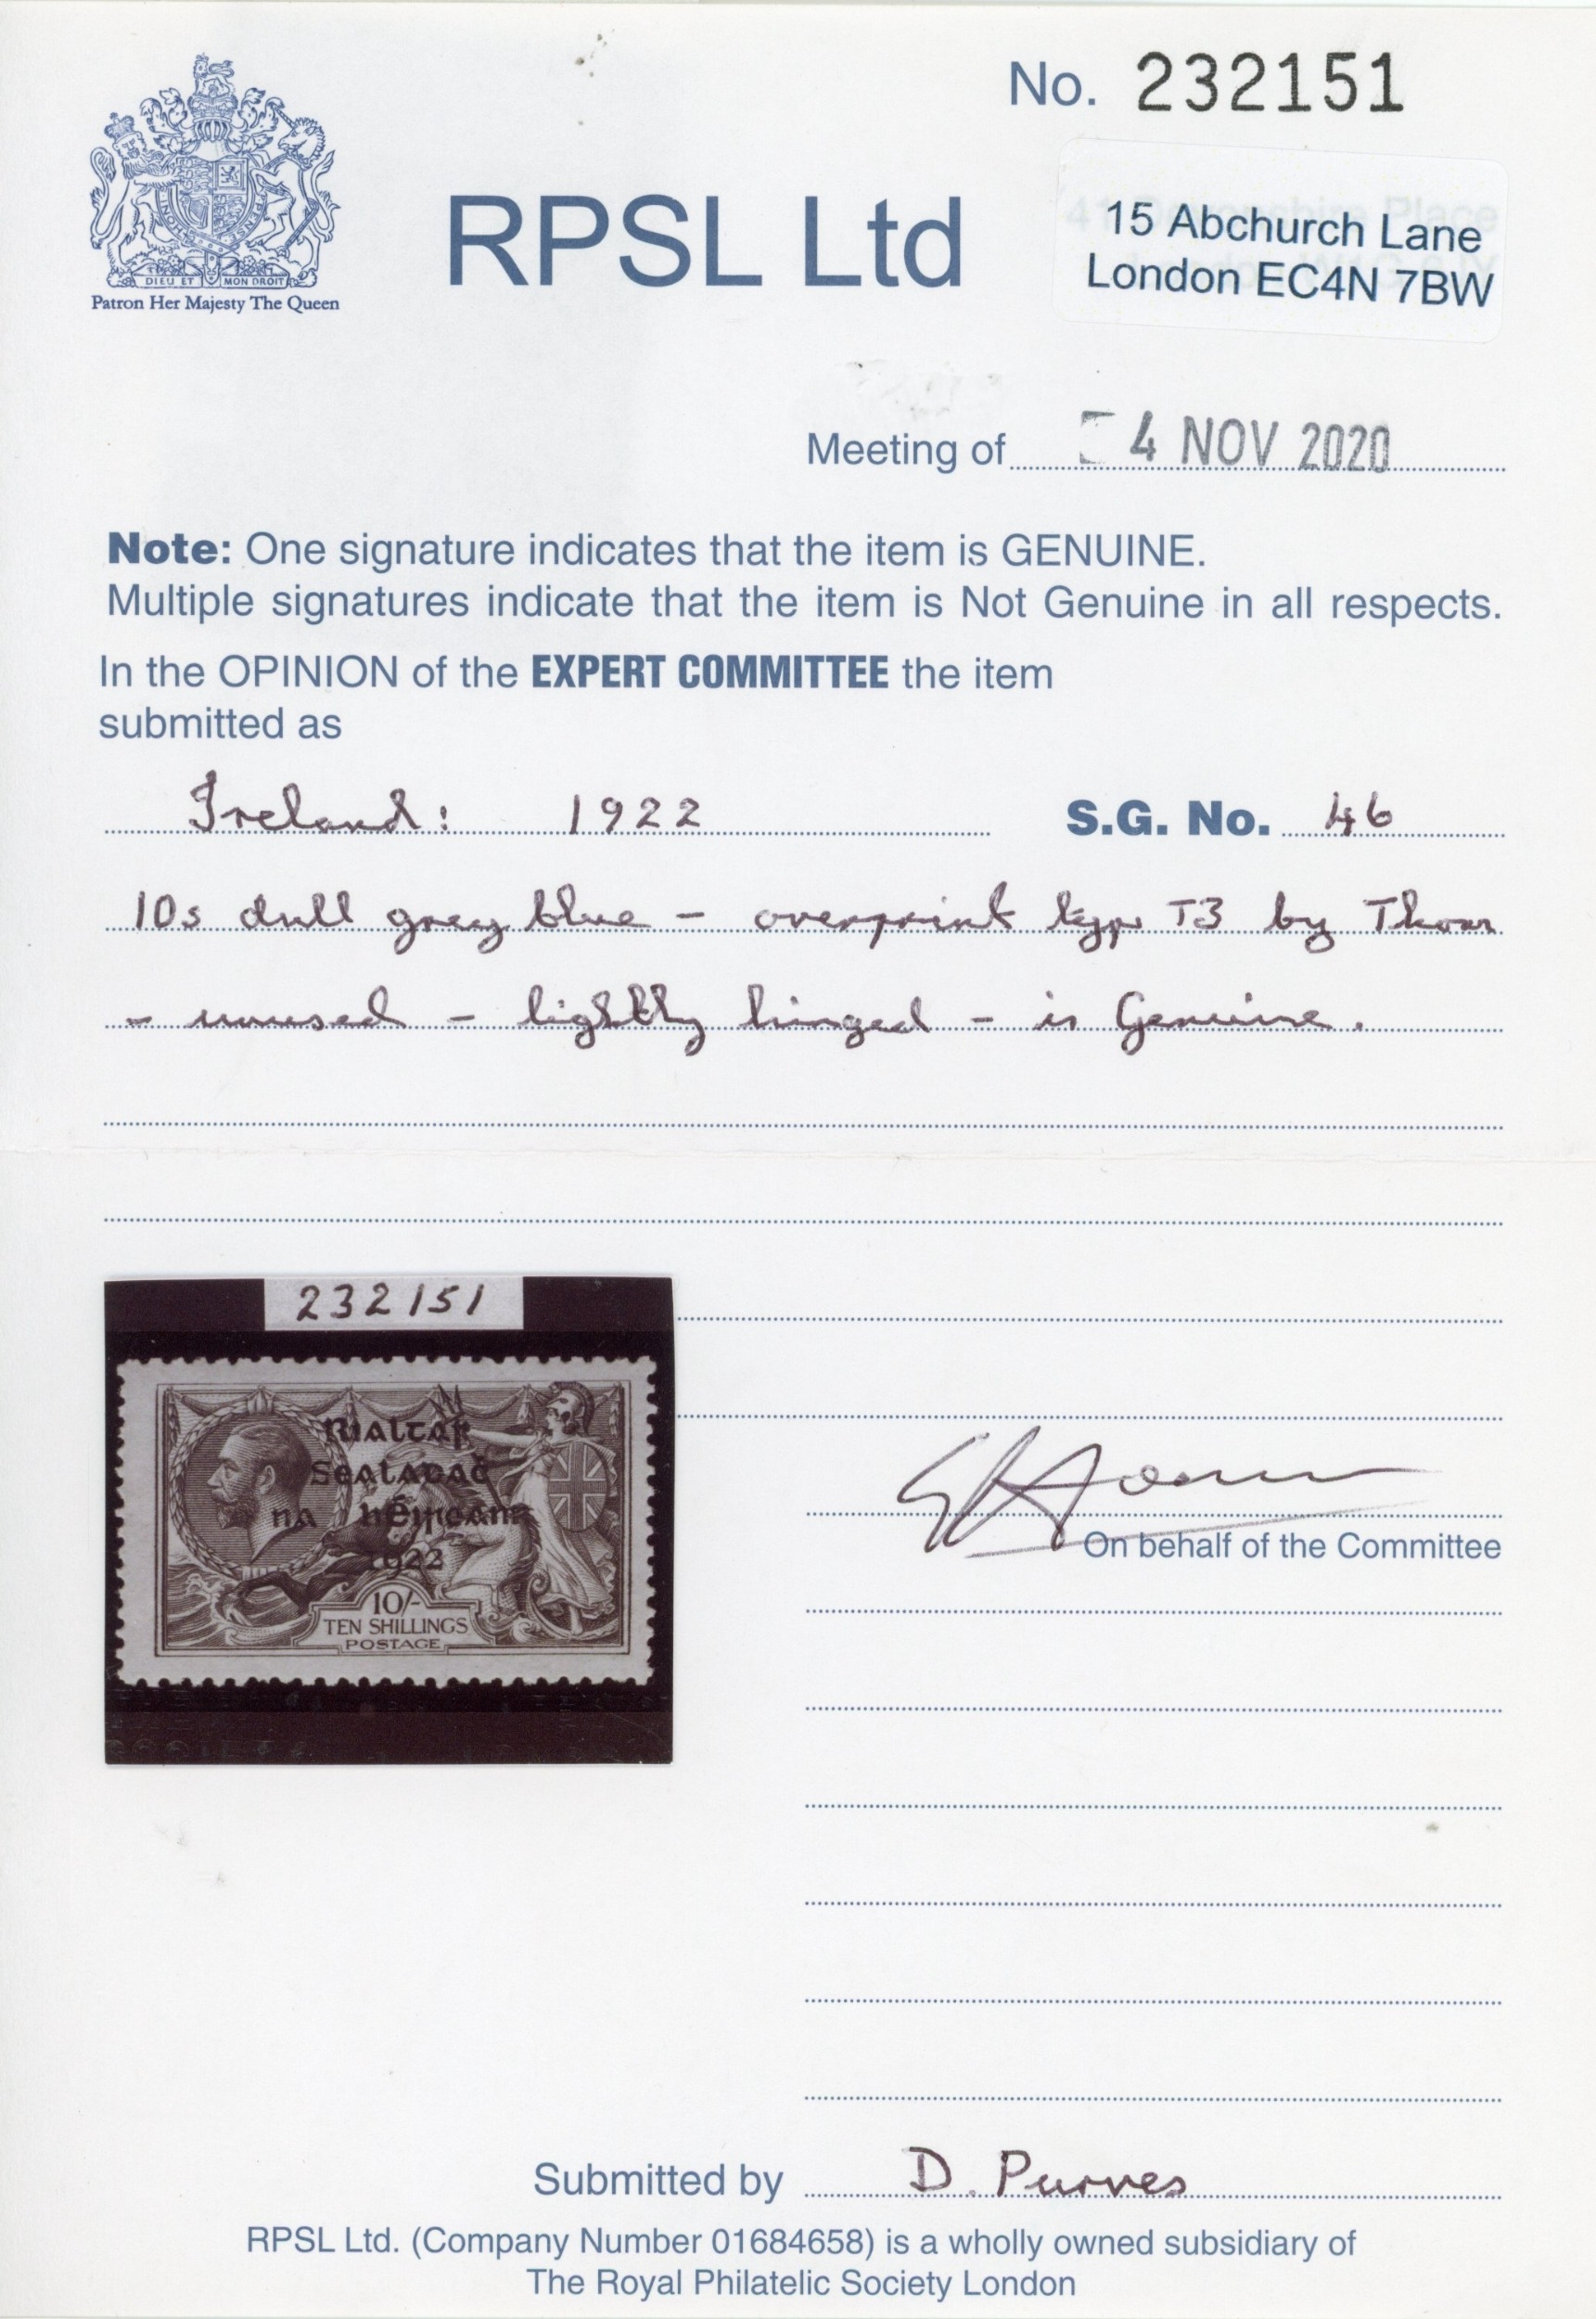 No. 232151
DIEU ET MON DROIT
Patron Her Majesty The Queen
RPSL Ltd
15 Abchurch Lane
London EC4N 7BW
Meeting of 4 NOV 2020
Note: One signature indicates that the item is GENUINE.
Multiple signatures indicate that the item is Not Genuine in all respects.
In the OPINION of the EXPERT COMMITTEE the item
submitted as
Ireland: 1922 S.G. No. 46
10s dull grey blue - overprint type T3 by Thom
- unused - lightly hinged - is Genuine.
232151
Rialtas
Sealadaċ
na hÉireann
1922
10/-
TEN SHILLINGS
POSTAGE
On behalf of the Committee
Submitted by D. Purves
RPSL Ltd. (Company Number 01684658) is a wholly owned subsidiary of
The Royal Philatelic Society London